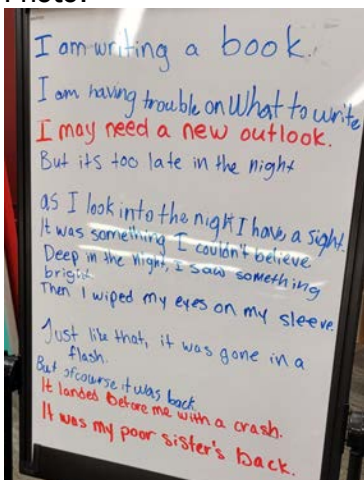 Photo:
I am writing a book.
I am having trouble on What to write
I may need a new outlook.
But its too late in the night
as I look into the night I have a sight.
It was something I couldn't believe
Deep in the night, I saw something
bright.
Then I wiped my eyes on my sleeve.
Just like that, it was gone in a
flash.
But ofcourse it was back.
It landed before me with a crash.
It was my poor sister's back.